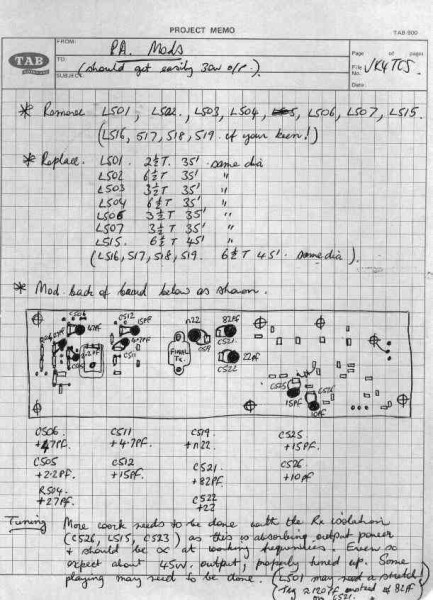 PROJECT MEMO
TAB 900
TAB
FROM:
P.A. Mods
TO:
(should get easily 30W o/p.)
SUBJECT:
Page of pages
File No.
VK4TCS
Date:
* Remove L501, L502, L503, L504, L506, L507, L515.
(L516, 517, 518, 519. if your keen!)
* Replace. L501. 2½ T. 35' same dia
L502 6½ T 35' "
L503 3½ T 35' "
L504 6½ T 35' "
L506 3½ T 35' "
L507 3½ T 35' "
L515. 6½ T 45' "
(L516, 517, 518, 519. 6½ T 45'. same dia).
* Mod. back of board below as shown.
C506
47PF
C512
15PF
4.7PF
C511
2.2PF
C505
FINAL
Tc.
n22
C519
82PF
C521
22PF
C522
C525
15PF
C526
10PF
C506 C511 C519 C525
+47PF. +4.7PF. +n22 +15PF.
C505 C512 C521 C526
+2.2PF. +15PF. +82PF +10PF
R504 C522
+2.7PF. +22
Tuning More work needs to be done with the Rx isolation
(C526, L515, C523) as this is absorbing output power
+ should be ∝ at working frequencies. Even so
expect about 45W. output, properly tuned up. Some
playing may need to be done. (L501 may need a stretch)
Try a 120PF instead of 82PF
on C521.